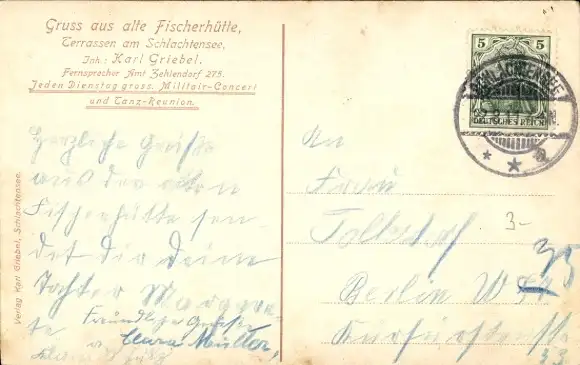 Gruss aus alte Fischerhütte,
Terrassen am Schlachtensee,
Inh.: Karl Griebel.
Fernsprecher Amt Zehlendorf 275.
Jeden Dienstag gross. Militair-Concert
und Tanz-Reunion.
Herzliche Grüße
aus der alten
Fischerhütte sen-
det dir deine
Tochter Margare-
te
Freundliche Grüße
Clara Müller
Verlag Karl Griebel, Schlachtensee.
5 5
DEUTSCHES REICH
SCHLACHTENSEE
An
Frau
3-
Berlin W
35
Kurfürstenstr
33